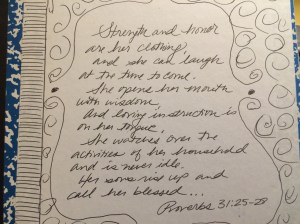 Strength and honor
are her clothing,
and she can laugh
at the time to come.
She opens her mouth
with wisdom,
and loving instruction is
on her tongue.
She watches over the
activities of her household
and is never idle.
Her sons rise up and
call her blessed...
Proverbs 31:25-28